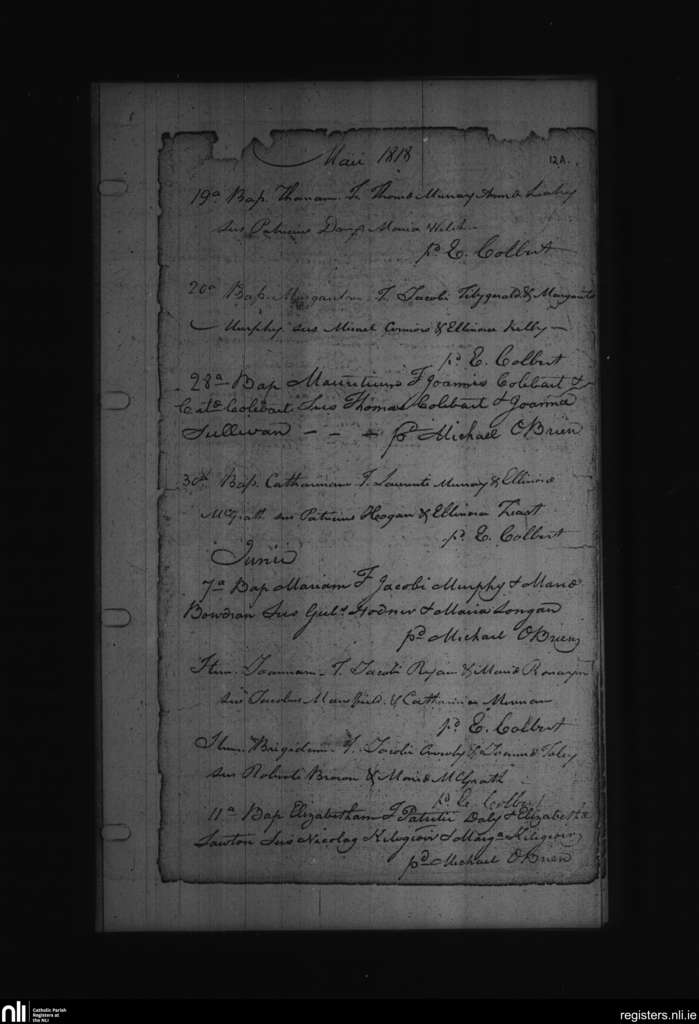 Maii 1818
12A.
19a Bap. Thomam F. Thomæ Murray Annæ Leahy
sus Patricius Maria Welch
pd E. Colbert
20a Bap. Margaritam F. Jacobi Fitzgerald & Margarita
Murphy sus Michael Connors & Ellinora Kelly
pd E. Colbert
28a Bap Mauritium F Joannis Colebart &
Catæ Colebart Sus Thomas Colebart & Joanna
Sullivan - - - pd Michael OBrien
30a Bap. Catharinam F. Laurenti Murray & Ellinoræ
McGrath sus Patricius Hogan & Ellinora
pd E. Colbert
Junii
7a Bap Mariam F Jacobi Murphy & Mariæ
Bowdran Sus & Maria Longan
pd Michael OBrien
Item. Joannam F. Jacobi Ryan & Mariæ Ronayn
sus Jacobus Mansfield & Catharina
pd E. Colbert
Item. Brigidam F. Jacobi Crowly & Joannæ Foley
sus Roberti Brown & Mariæ McGrath
pd E. Colbert
11a Bap Elizabetham F Patritii Daly & Elizabethæ
Lawton Sus Nicolas & Marga
pd Michael OBrien
nli
Catholic Parish
Registers at
the NLI
registers.nli.ie